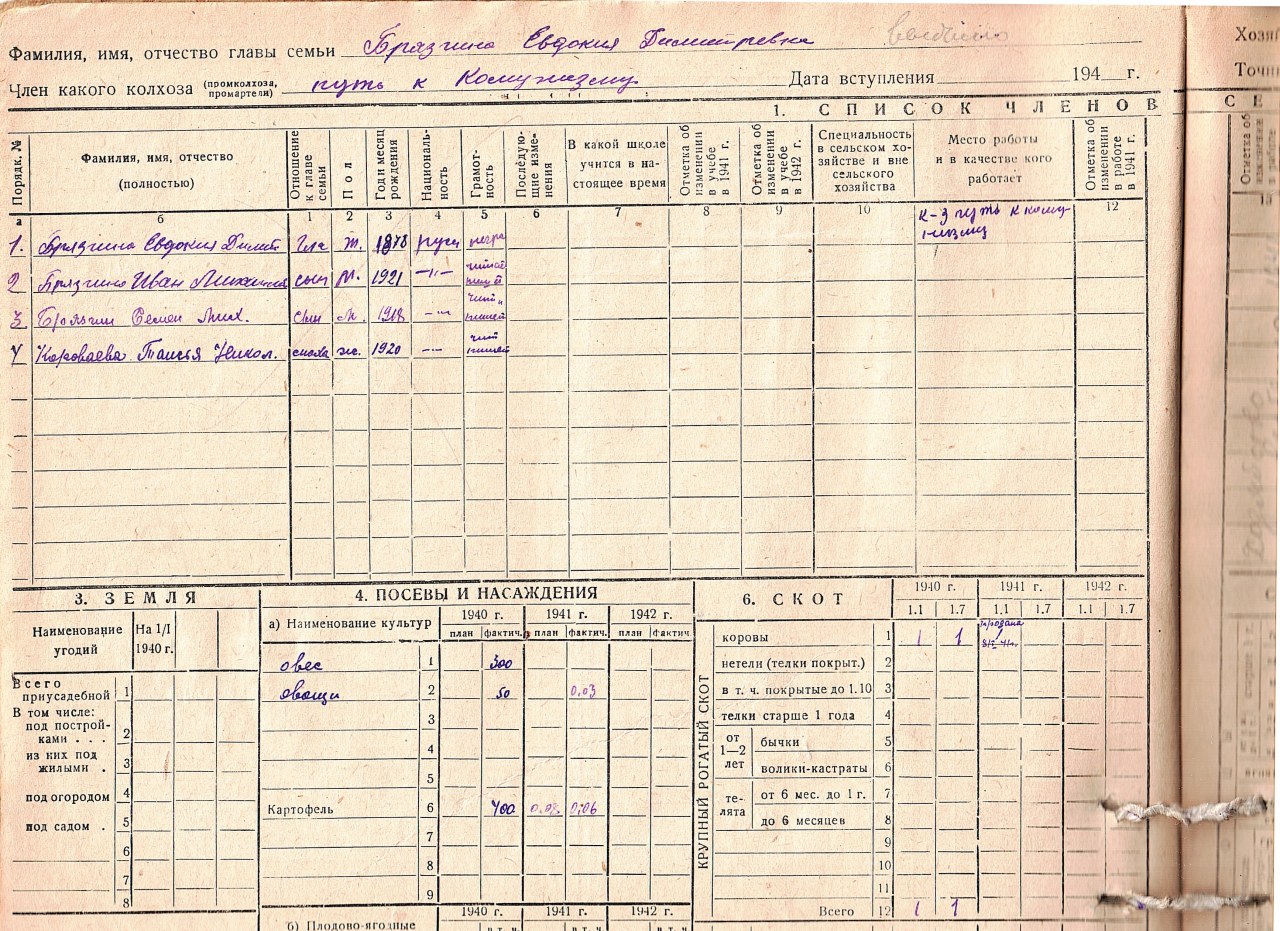 Фамилия, имя, отчество главы семьи Брязгина Евдокия Димитревна выбыла
Член какого колхоза (промколхоза, промартели) путь к Комунизму Дата вступления 194 г.
1. СПИСОК ЧЛЕНОВ
Порядк. № Фамилия, имя, отчество (полностью) Отношение к главе семьи Пол Год и месяц рождения Националь-ность Грамот-ность Последую-щие изме-нения В какой школе учится в на-стоящее время Отметка об изменении в учебе в 1941 г. Отметка об изменении в учебе в 1942 г. Специальность в сельском хо-зяйстве и вне сельского хозяйства Место работы и в качестве кого работает Отметка об изменении в работе в 1941 г.
а б 1 2 3 4 5 6 7 8 9 10 12
1. Брязгина Евдокия Димит Гла ж. 1878 русс негра к-з путь к кому-низму
2 Брязгин Иван сын м. 1921 —"—
3 Брязгин Семен Мих. сын м. 1918 —"—
4 Короваева Таисья Никол. сноха ж. 1920 —"—
3. ЗЕМЛЯ
Наименование угодий На 1/I 1940 г.
Всего приусадебной 1
В том числе:
под построй-ками . . . 2
из них под жилыми . 3
под огородом 4
под садом . 5
6
7
8
4. ПОСЕВЫ И НАСАЖДЕНИЯ
а) Наименование культур 1940 г. 1941 г. 1942 г.
план фактич. план фактич. план фактич
овес 1 300
овощи 2 50 0,03
3
4
5
Картофель 6 400 0,06
7
8
9
1940 г. 1941 г. 1942 г.
б) Плодово-ягодные в т. ч в т. ч в т. ч
6. СКОТ
1940 г. 1941 г. 1942 г.
1.1 1.7 1.1 1.7 1.1 1.7
КРУПНЫЙ РОГАТЫЙ СКОТ
коровы 1 1 1 продана 1
нетели (телки покрыт.) 2
в т. ч. покрытые до 1.10 3
телки старше 1 года 4
от 1—2 лет бычки 5
волики-кастраты 6
те-лята от 6 мес. до 1 г. 7
до 6 месяцев 8
9
10
11
Всего 12 1 1